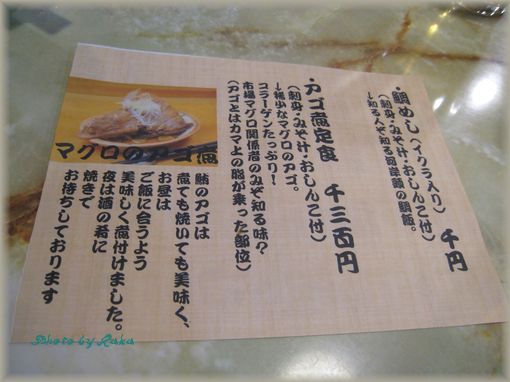 ・鯛めし（イクラ入り） 千円
（刺身・みそ汁・おしんこ付）
～知るみぞ知る河岸頭の鯛飯。
・アゴ煮定食 千三百円
（刺身・みそ汁・おしんこ付）
～稀少なマグロのアゴ。
コラーゲンたっぷり！
市場マグロ関係者のみぞ知る味？
（アゴとはカマ上の脂が乗った部位）
マグロのアゴ煮
鮪のアゴは
煮ても焼いても美味く、
お昼は
ご飯に合うよう
美味しく煮付けました。
夜は酒の肴に
焼きで
お待ちしております
Photo by Raka